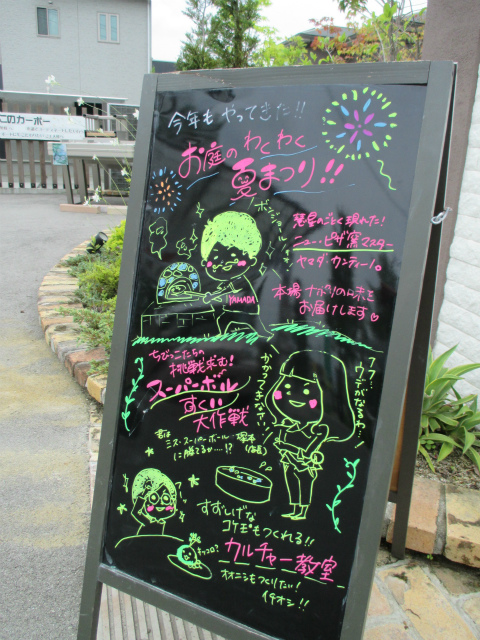 このカーポー
今年もやってきた!!
お庭のわくわく
夏まつり!!
ボンジョールノ
YAMADA
彗星のごとく現れた!
ニュー・ピザ窯マスター
ヤマダ・カンティーノ。
本場ナポリの味を
お届けします♡
ちびっこたちの
挑戦求む!
スーパーボール
すくい
大作戦
君は
ミス・スーパーボール 塚本
に勝てるか……!?
かかってきなさい!
フフ…
ウデがなるわ…!
すずしげな
コケ玉もつくれる!!
カルチャー教室
オオニシもつくりたい!
イチオシ!!